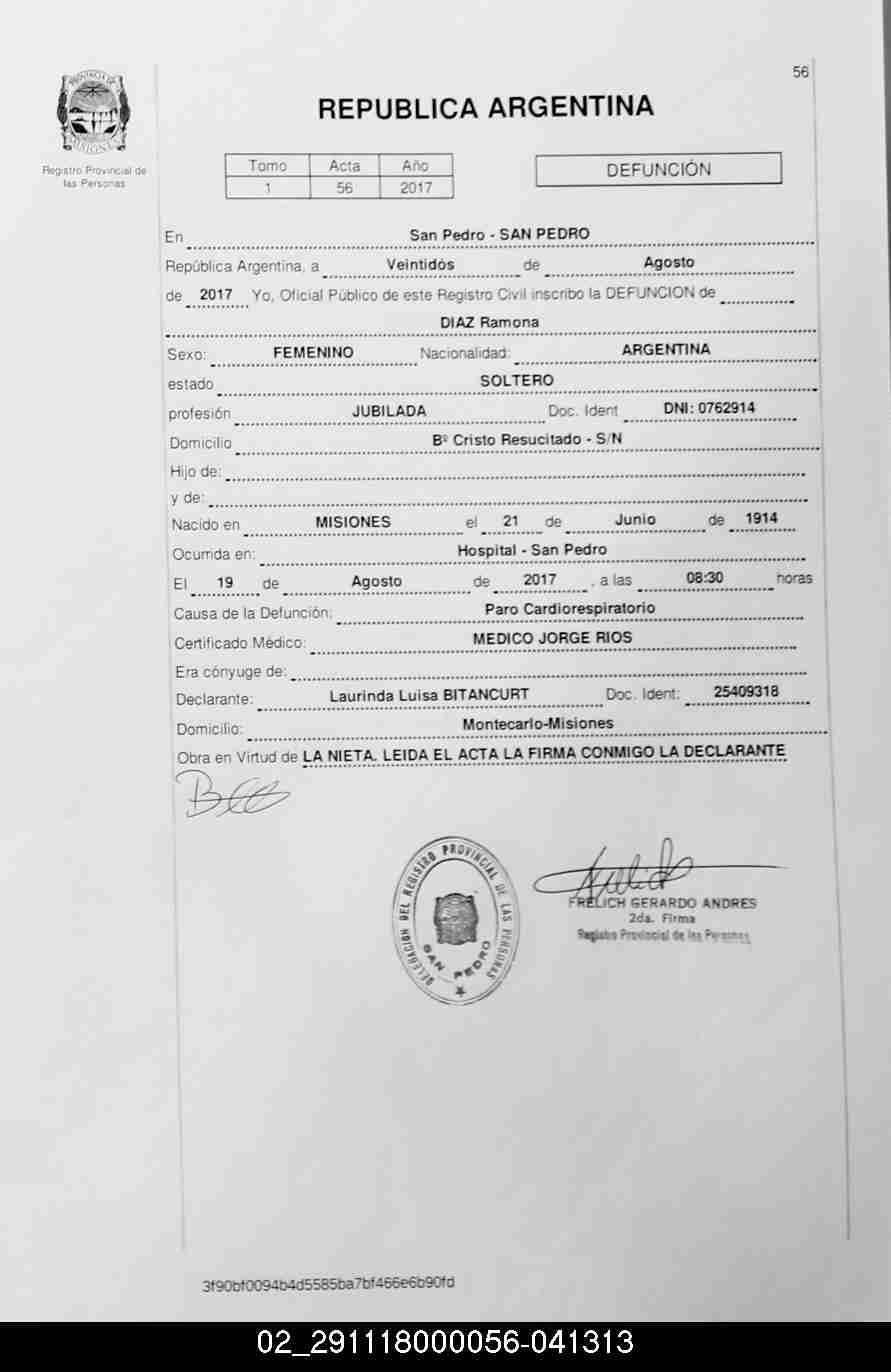 56
PROVINCIA DE
MISIONES
Registro Provincial de
las Personas
REPUBLICA ARGENTINA
Tomo Acta Año
1 56 2017
DEFUNCIÓN
En San Pedro - SAN PEDRO
República Argentina, a Veintidós de Agosto
de 2017 Yo, Oficial Público de este Registro Civil inscribo la DEFUNCION de
DIAZ Ramona
Sexo: FEMENINO Nacionalidad: ARGENTINA
estado SOLTERO
profesión JUBILADA Doc. Ident DNI: 0762914
Domicilio Bº Cristo Resucitado - S/N
Hijo de:
y de:
Nacido en MISIONES el 21 de Junio de 1914
Ocurrida en: Hospital - San Pedro
El 19 de Agosto de 2017 , a las 08:30 horas
Causa de la Defunción: Paro Cardiorespiratorio
Certificado Médico: MEDICO JORGE RIOS
Era cónyuge de:
Declarante: Laurinda Luisa BITANCURT Doc. Ident: 25409318
Domicilio: Montecarlo-Misiones
Obra en Virtud de LA NIETA. LEIDA EL ACTA LA FIRMA CONMIGO LA DECLARANTE
DELEGACION DEL REGISTRO PROVINCIAL DE LAS PERSONAS
SAN PEDRO
FRELICH GERARDO ANDRES
2da. Firma
Registro Provincial de las Personas
3f90bf0094b4d5585ba7bf466e6b90fd
02_291118000056-041313